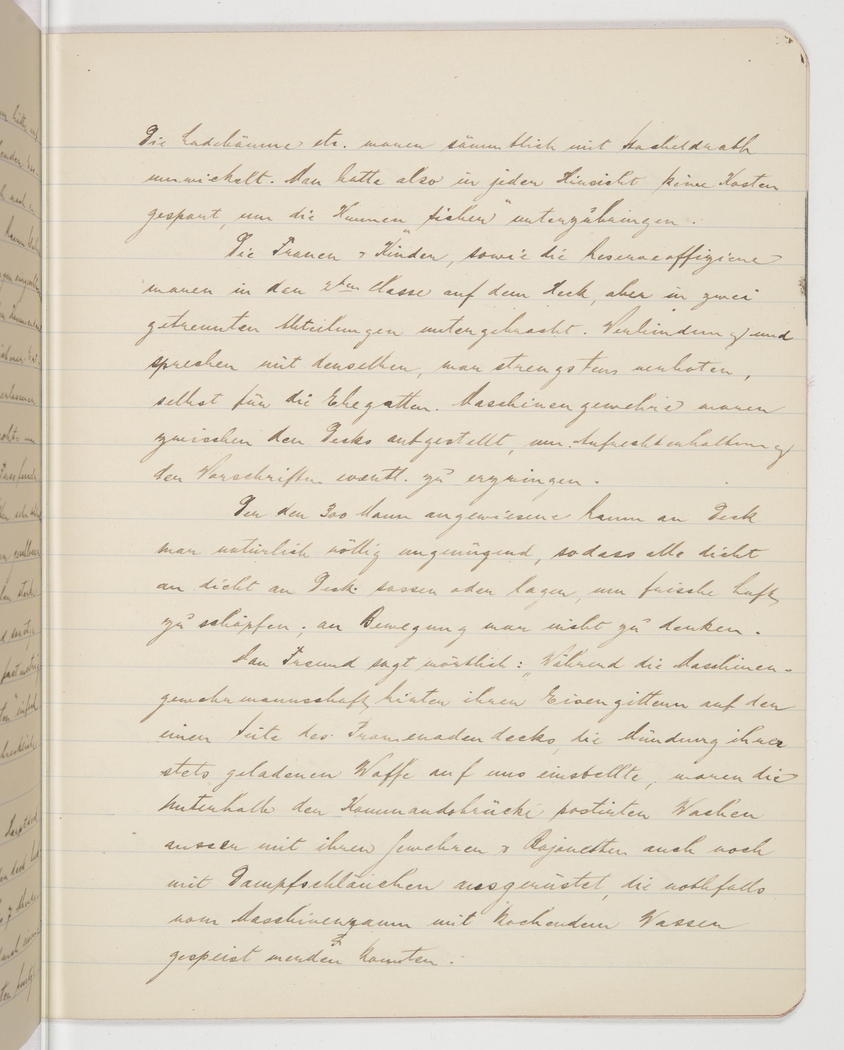 Die Ladebäume etc. waren sämmtlich mit Stacheldrath
umwickelt. Man hatte also in jeder Hinsicht keine Kosten
gespart, um die Hunnen "sicher" unterzubringen.
Die Frauen & Kinder, sowie die Reserveoffiziere
waren in der 2ten Klasse auf dem Heck, aber in zwei
getrennten Abteilungen untergebracht. Verbindung und
sprechen mit denselben, war strengstens verboten,
selbst für die Ehegatten. Maschinengewehre waren
zwischen den Decks aufgestellt, um Aufrechterhaltung
der Vorschriften eventl. zu erzwingen.
Der den 300 Mann angewiesene Raum an Deck
war natürlich völlig ungenügend, sodass alle dicht
an dicht an Deck sassen oder lagen, um frische Luft
zu schöpfen; an Bewegung war nicht zu denken.
Von Freund sagt wörtlich: "Während die Maschinen-
gewehrmannschaft hinter ihren Eisengittern auf der
einen Seite des Promenadendecks, die Mündung ihrer
stets geladenen Waffe auf uns einstellte, waren die
unterhalb der Kommandobrücke postirten Wachen
ausser mit ihren Gewehren & Bajonetten auch noch
mit Dampfschläuchen ausgerüstet, die nothfalls
vom Maschinenraum mit kochendem Wasser
gespeist werden konnten.